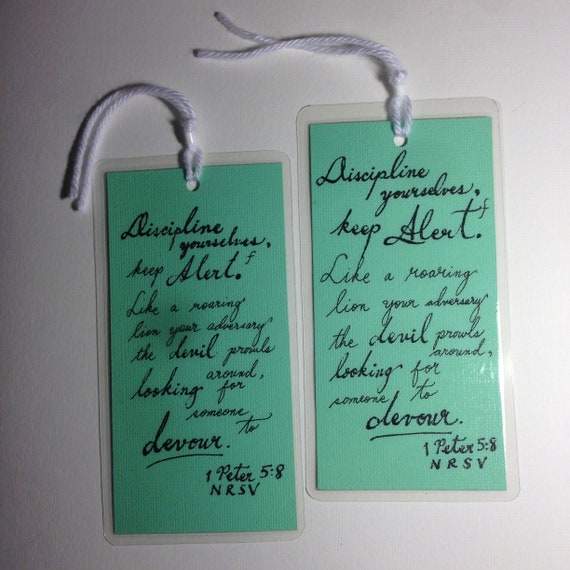 Discipline
yourselves,
keep Alert.f
Like a roaring
lion your adversary
the devil prowls
around,
looking for
someone to
devour.
1 Peter 5:8
NRSV
Discipline
yourselves,
keep Alert.f
Like a roaring
lion your adversary
the devil prowls
around,
looking for
someone to
devour.
1 Peter 5:8
NRSV